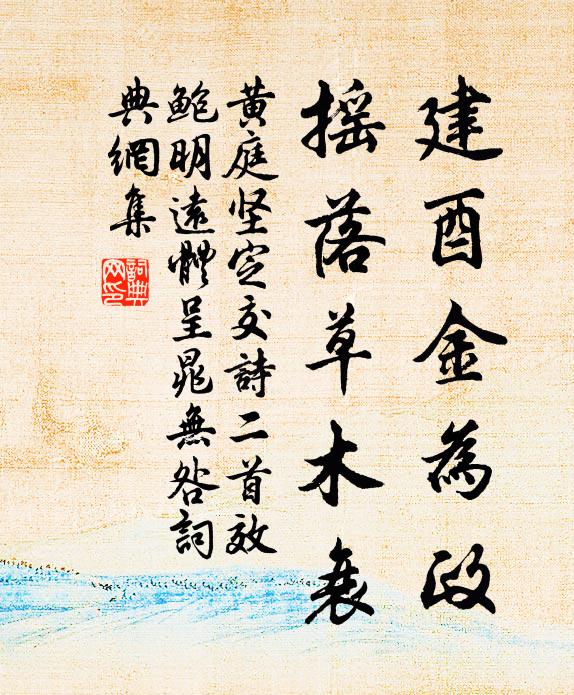 建酉金為政
搖落草木衰
黃庭坚定交詩二首效
鮑明遠體呈晁無咎詞
典網集
詞典
网印